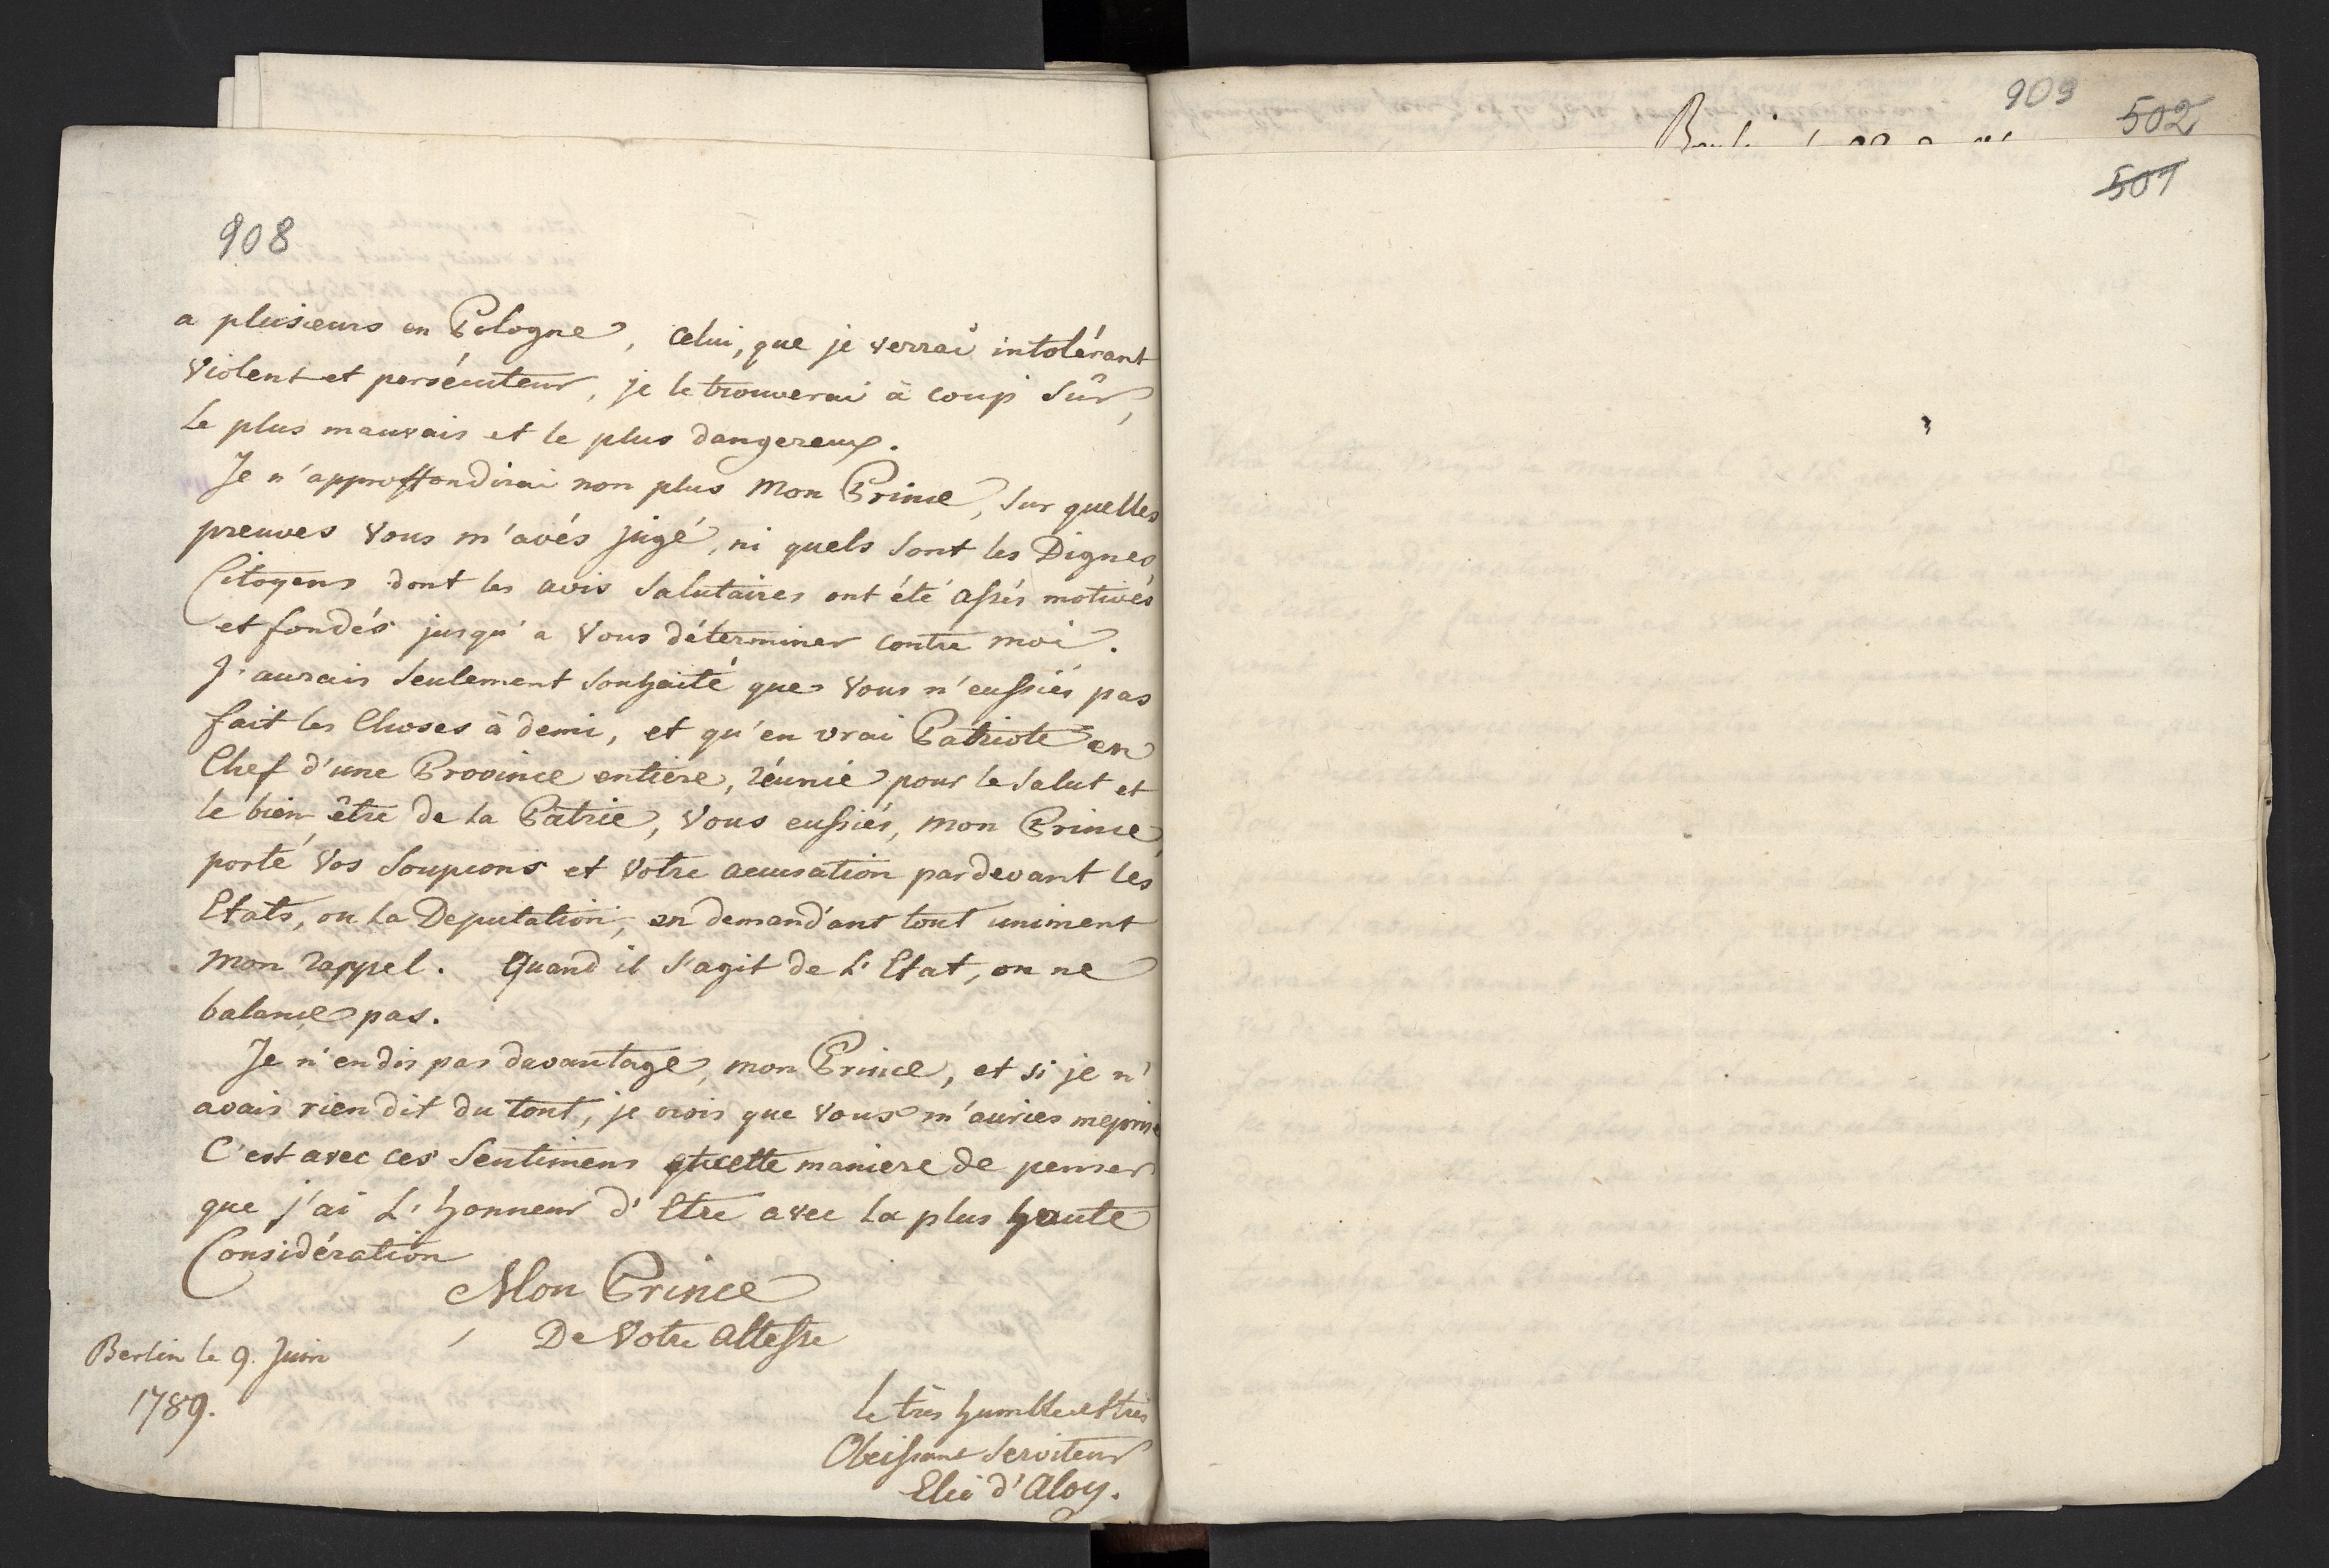 908
a plusieurs en Pologne, celui, que je verrai intolérant
violent et persécuteur, je le trouverai à coup sûr,
le plus mauvais et le plus dangereux.
Je n'approffondirai non plus Mon Prince, sur quelles
preuves Vous m'avés jugé, ni quels sont les Dignes
Citoyens dont les avis salutaires ont été assés motivés
et fondés jusqu'a Vous déterminer contre moi.
J'aurais seulement souhaité que Vous n'eussiés pas
fait les Choses à demi, et qu'en vrai Patriote en
Chef d'une Province entière, réunie pour le salut et
le bien être de la Patrie, Vous eussiés, mon Prince,
porté Vos soupcons et Votre accusation pardevant les
Etats, ou la Deputation, en demandant tout uniment
mon rappel. Quand il s'agit de l'Etat, on ne
balance pas.
Je n'en dis pas davantage, mon Prince, et si je n'
avais rien dit du tout, je crois que Vous m'auries meprisé
C'est avec ces sentimens et cette maniere de penser
que j'ai l'honneur d'Etre avec la plus haute
Considération
Mon Prince
De Votre Altesse
Berlin le 9. Juin
1789.
le très humble et très
Obeissant serviteur
Elie d'Aloy.
909
502
501